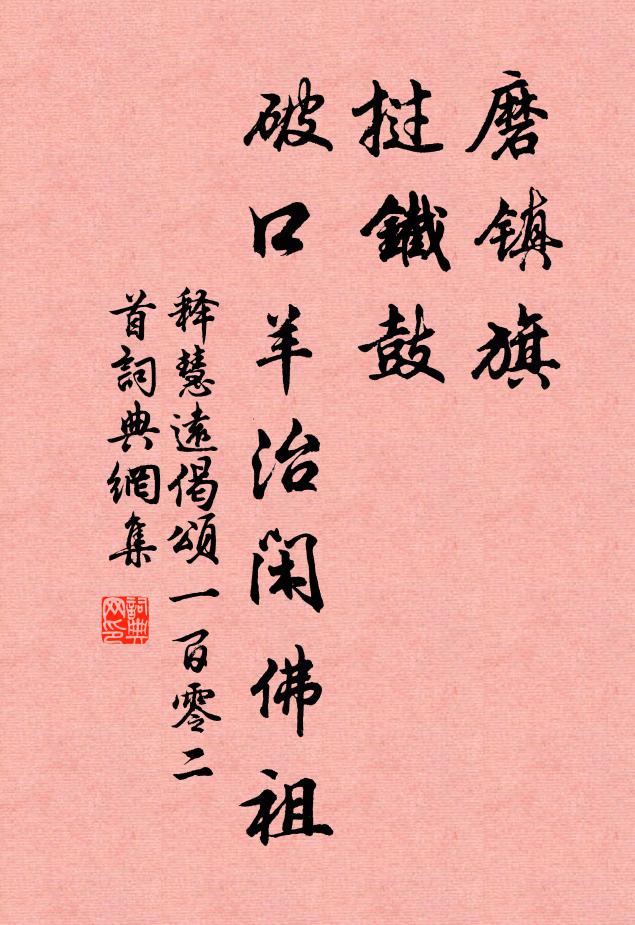 磨镇旗
挝鐵鼓
破口羊治闲佛祖
释慧遠偈頌一百零二
首詞典網集
詞典网印